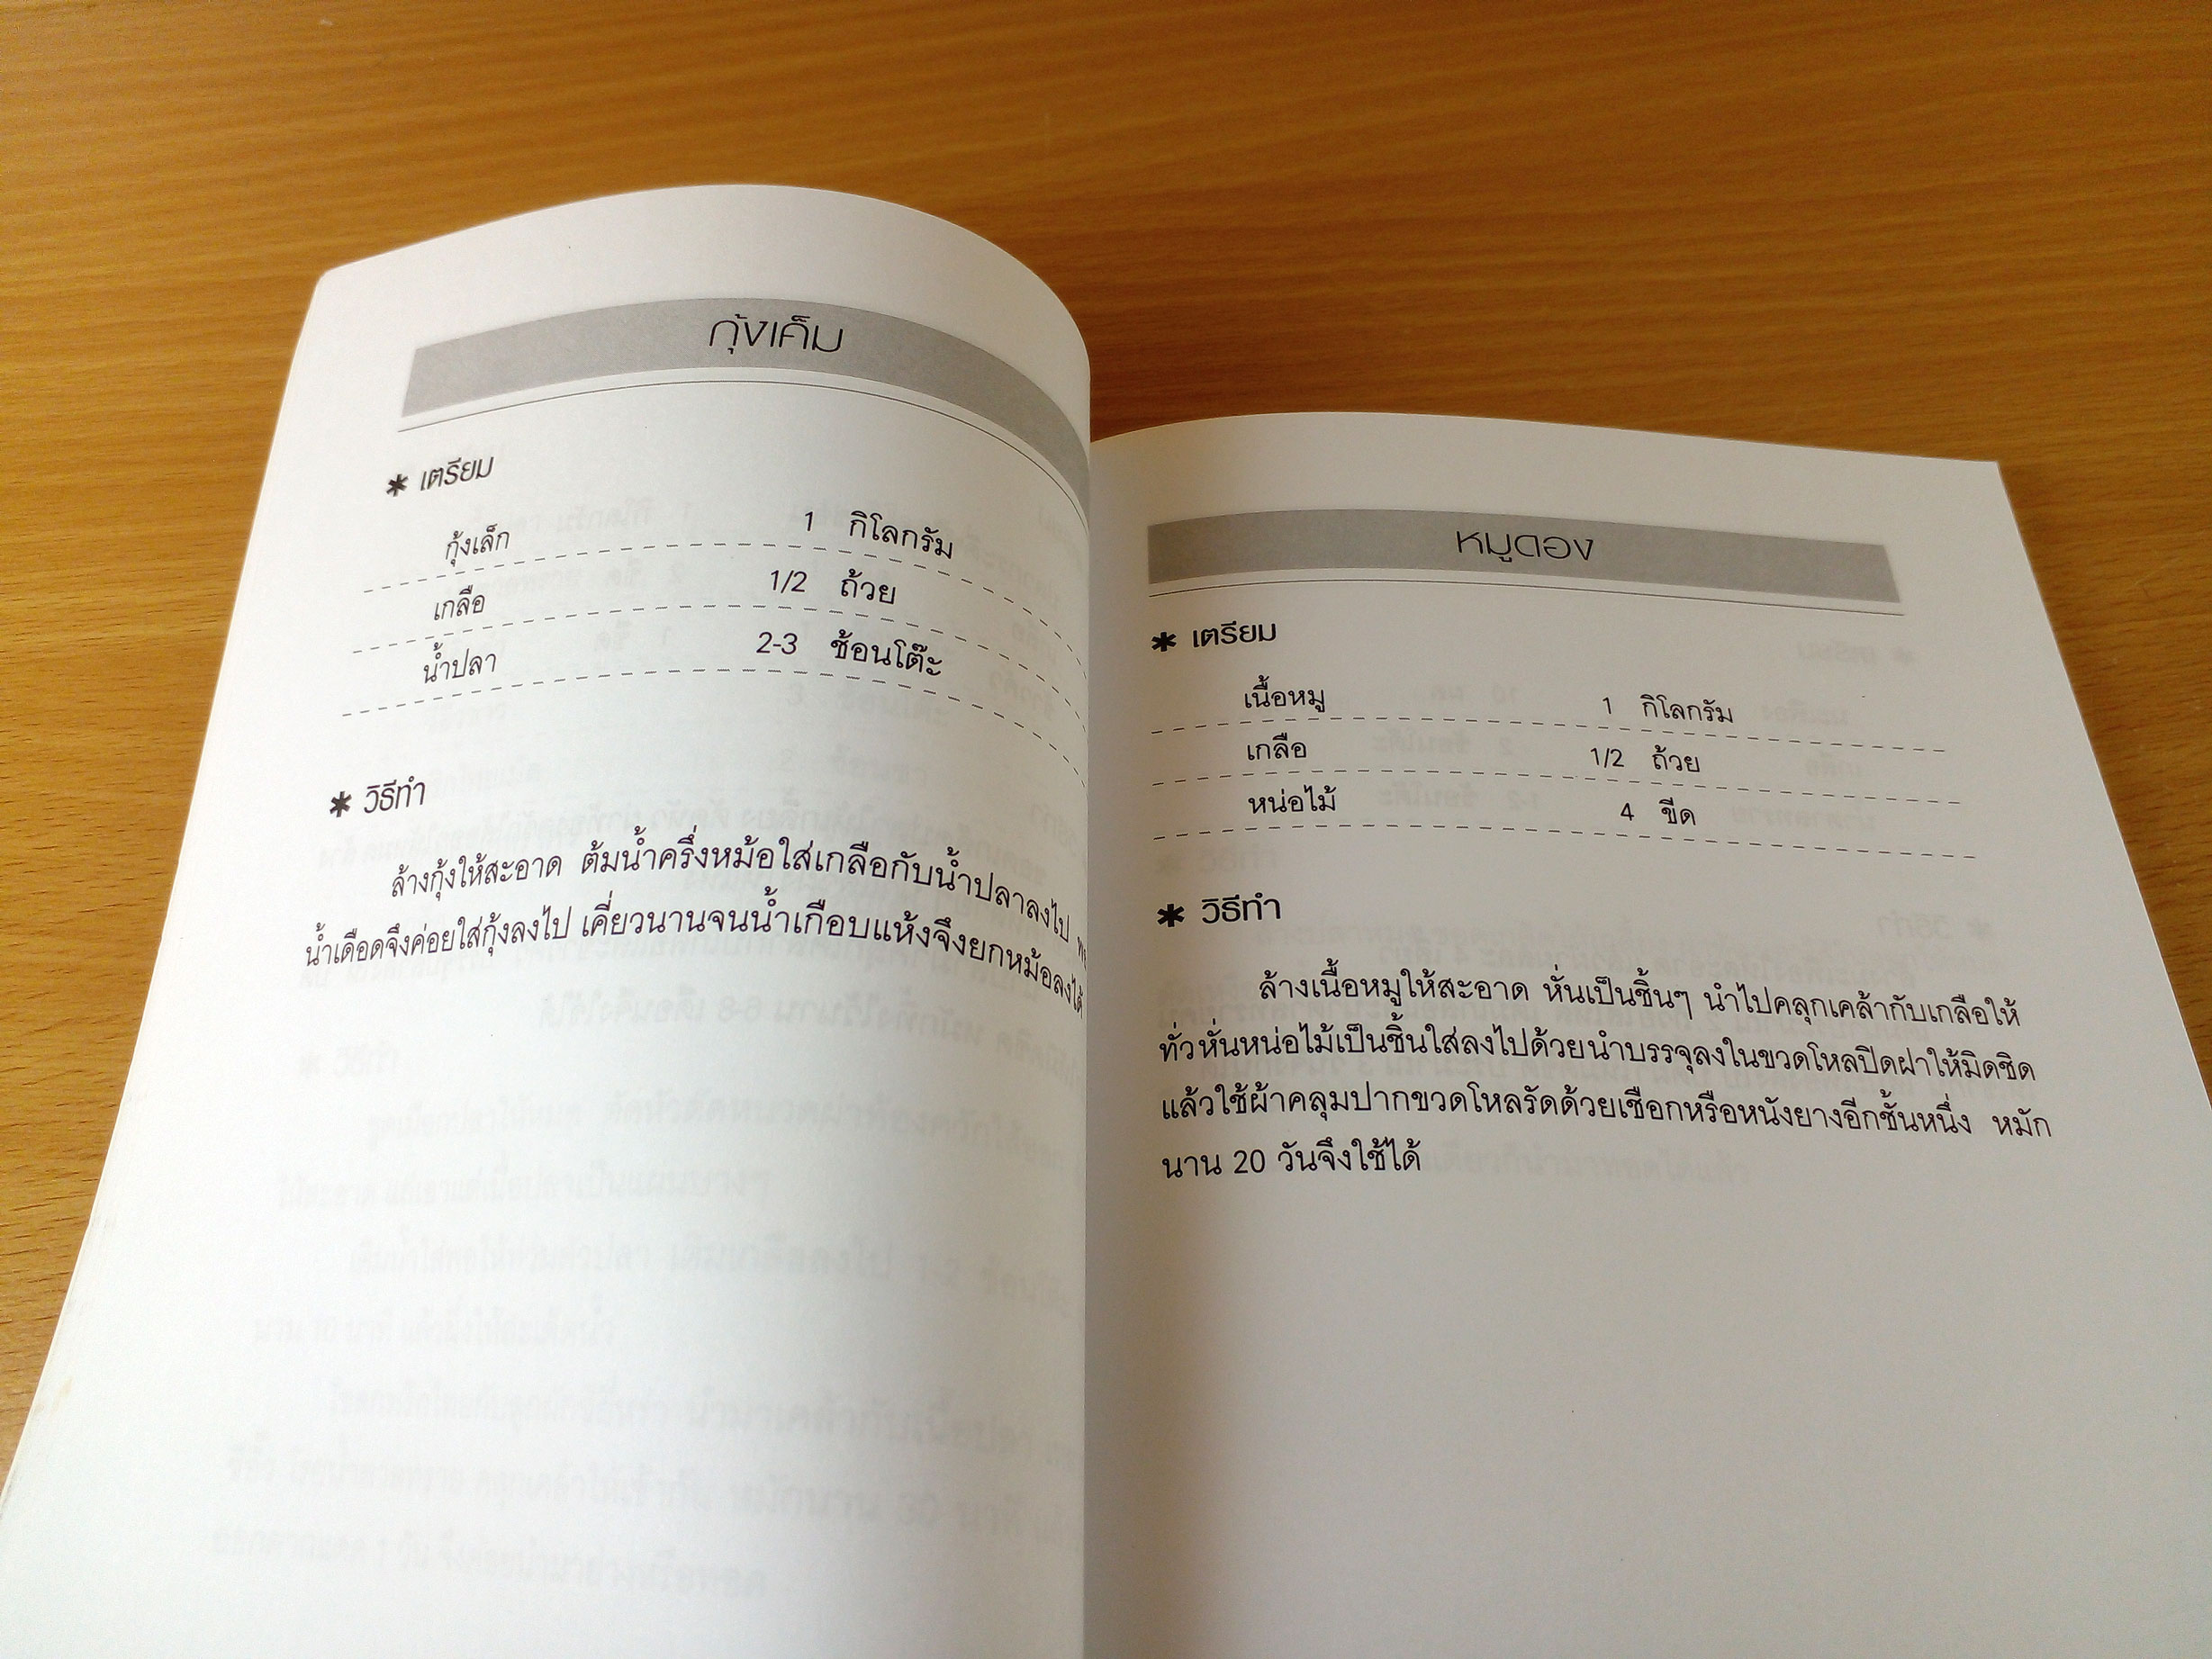 กุ้งเค็ม
* เตรียม
กุ้งเล็ก 1 กิโลกรัม
เกลือ 1/2 ถ้วย
น้ำปลา 2-3 ช้อนโต๊ะ
* วิธีทำ
ล้างกุ้งให้สะอาด ต้มน้ำครึ่งหม้อใส่เกลือกับน้ำปลาลงไป
น้ำเดือดจึงค่อยใส่กุ้งลงไป เคี่ยวนานจนน้ำเกือบแห้งจึงยกหม้อลงได้
หมูดอง
* เตรียม
เนื้อหมู 1 กิโลกรัม
เกลือ 1/2 ถ้วย
หน่อไม้ 4 ขีด
* วิธีทำ
ล้างเนื้อหมูให้สะอาด หั่นเป็นชิ้นๆ นำไปคลุกเคล้ากับเกลือให้
ทั่วหั่นหน่อไม้เป็นชิ้นใส่ลงไปด้วยนำบรรจุลงในขวดโหลปิดฝาให้มิดชิด
แล้วใช้ผ้าคลุมปากขวดโหลรัดด้วยเชือกหรือหนังยางอีกชั้นหนึ่ง หมัก
นาน 20 วันจึงใช้ได้